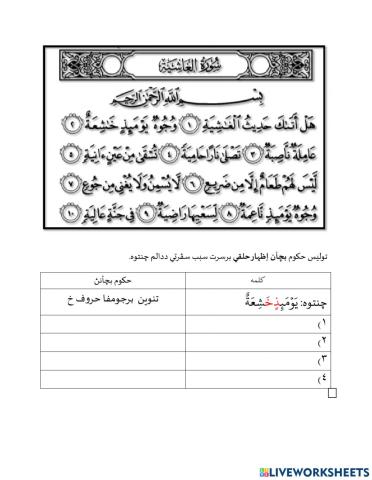 سُورَةُ الغَاشِيَةِ
بِسْمِ اللَّهِ الرَّحْمَٰنِ الرَّحِيمِ
هَلْ أَتَىٰكَ حَدِيثُ الْغَٰشِيَةِ ١ وُجُوهٌ يَوْمَئِذٍ خَٰشِعَةٌ ٢
عَامِلَةٌ نَّاصِبَةٌ ٣ تَصْلَىٰ نَارًا حَامِيَةً ٤ تُسْقَىٰ مِنْ عَيْنٍ ءَانِيَةٍ ٥
لَّيْسَ لَهُمْ طَعَامٌ إِلَّا مِن ضَرِيعٍ ٦ لَّا يُسْمِنُ وَلَا يُغْنِى مِن جُوعٍ ٧
وُجُوهٌ يَوْمَئِذٍ نَّاعِمَةٌ ٨ لِّسَعْيِهَا رَاضِيَةٌ ٩ فِى جَنَّةٍ عَالِيَةٍ ١٠
توليس حكوم بچأن إظهار حلقي برسرت سبب سڤرتي ددالم چنتوه.
كلمه حكوم بچأنن
چنتوه: يَوْمَئِذٍ خَٰشِعَةٌ تنوين برجومفا حروف خ
١)
٢)
٣)
٤)
LIVEWORKSHEETS